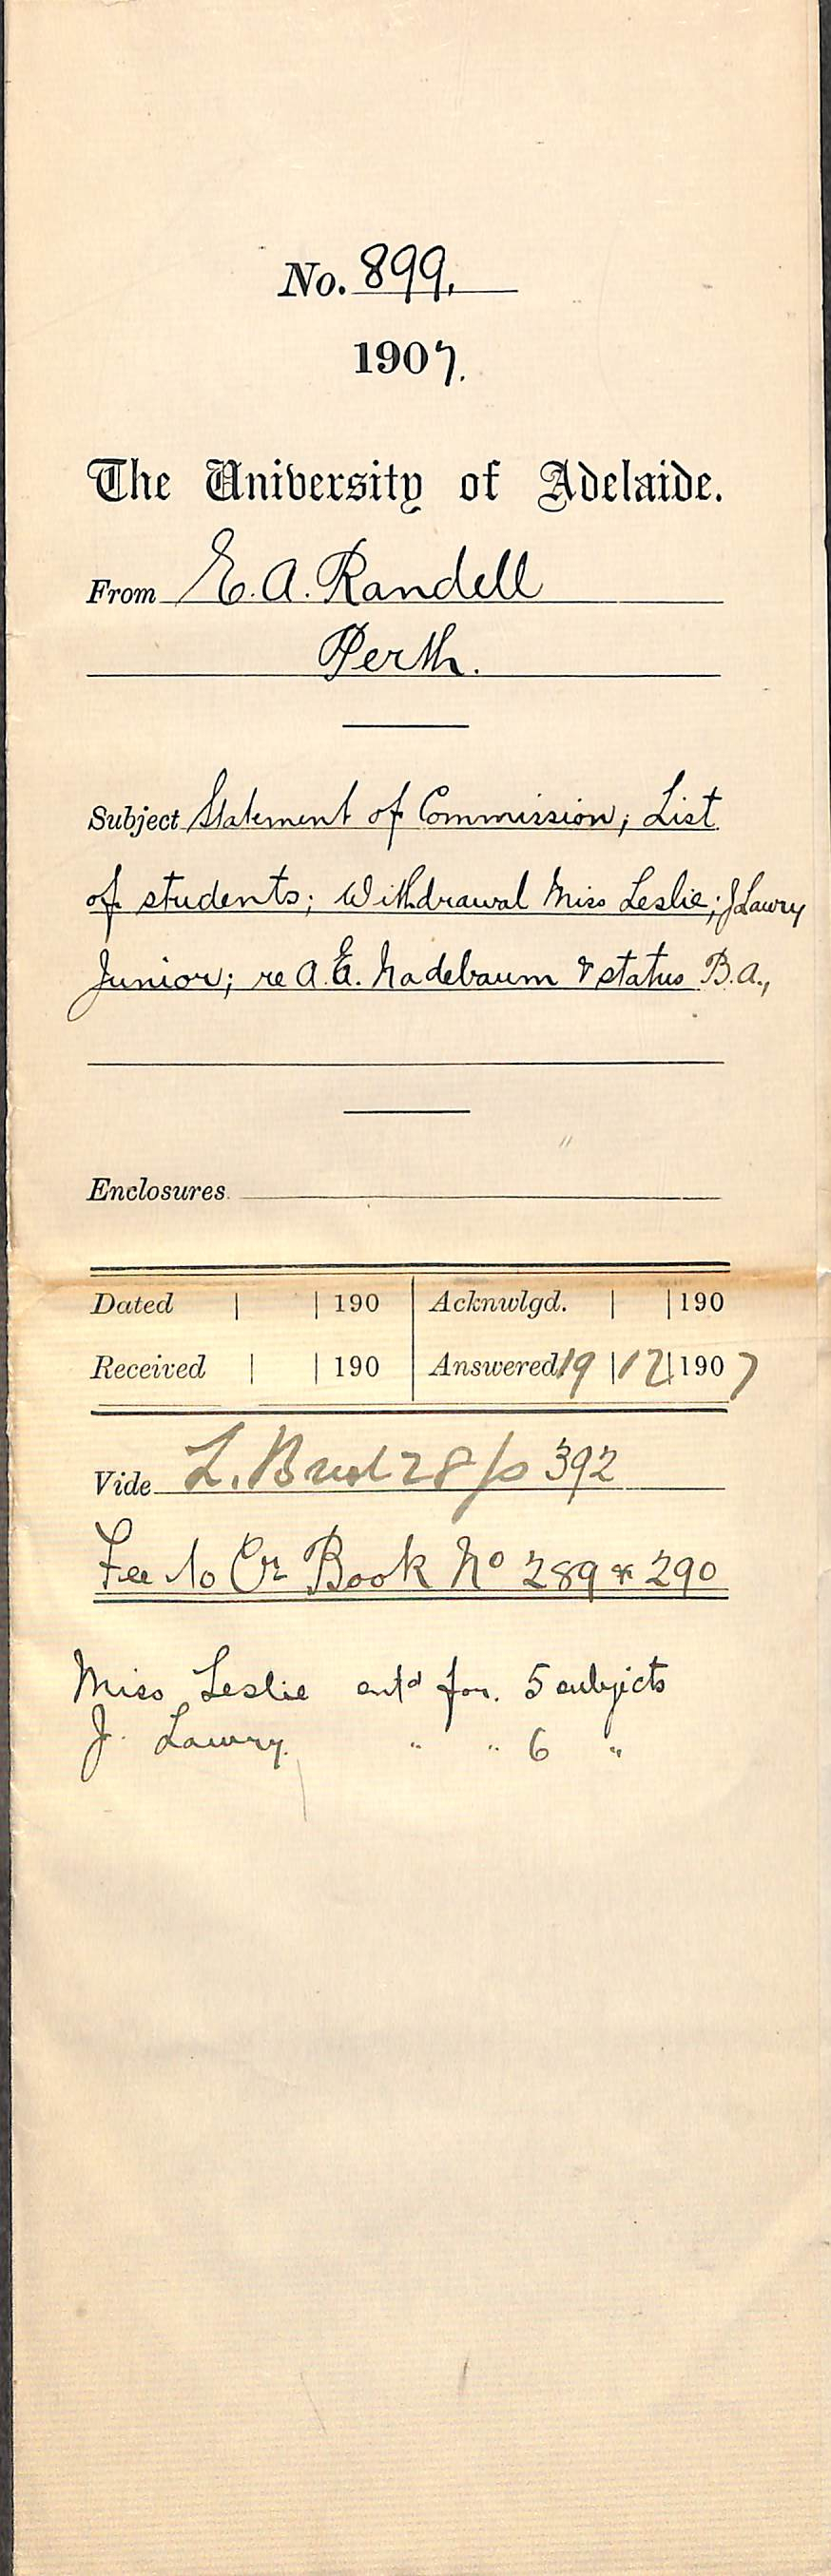 No. 899.
1907.
The University of Adelaide.
From E. A. Randell
Perth.
Subject Statement of Commission; List
of students; Withdrawal Miss Leslie; J Lawry
Junior; re A. E. Nadebaum & status B.A.,
Enclosures
Dated | | 190 Acknwlgd. | | 190
Received | | 190 Answered 19 | 12 | 1907
Vide L. Book 28 p 392
Fee to Cr Book No 289 & 290
Miss Leslie entd for. 5 subjects
J. Lawry. " " 6 "